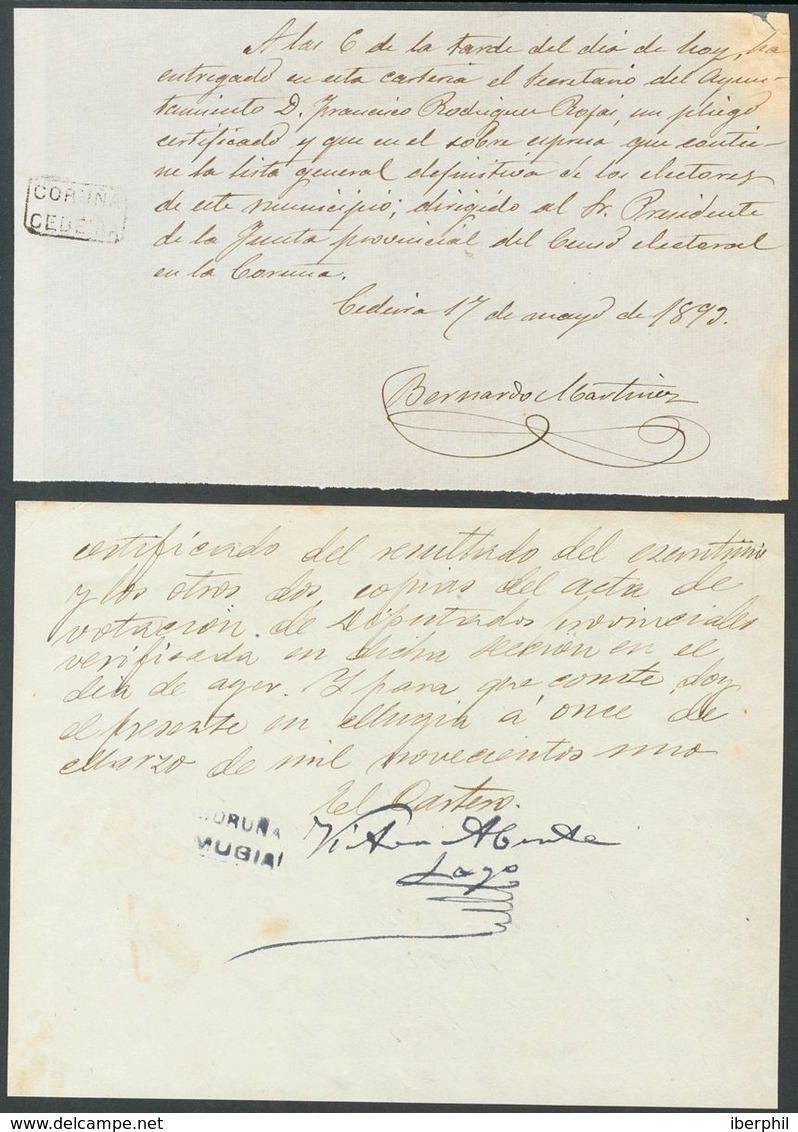 A las 6 de la tarde del dia de hoy, ha
entregado en esta carteria el Secretario del Ayun-
tamiento D. Francisco Rodriguez Rojas, un pliego
certificado y que en el sobre expresa que contie-
ne la lista general definitiva de los electores
de este municipio; dirigido al Sr. Presidente
de la Junta provincial del Censo electoral
en la Coruña.
CORUÑA
CEDEIRA
Cedeira 17 de mayo de 1893.
Bernardo Martinez
certificado del resultado del escrutinio
y los otros dos copias del acta de
votación de Diputados provinciales
verificada en dicha sección en el
dia de ayer. Y para que conste doy
el presente en Mugia á once de
Marzo de mil novecientos uno
El Cartero.
CORUÑA
MUGIA
Lago
delcampe.net
iberphil